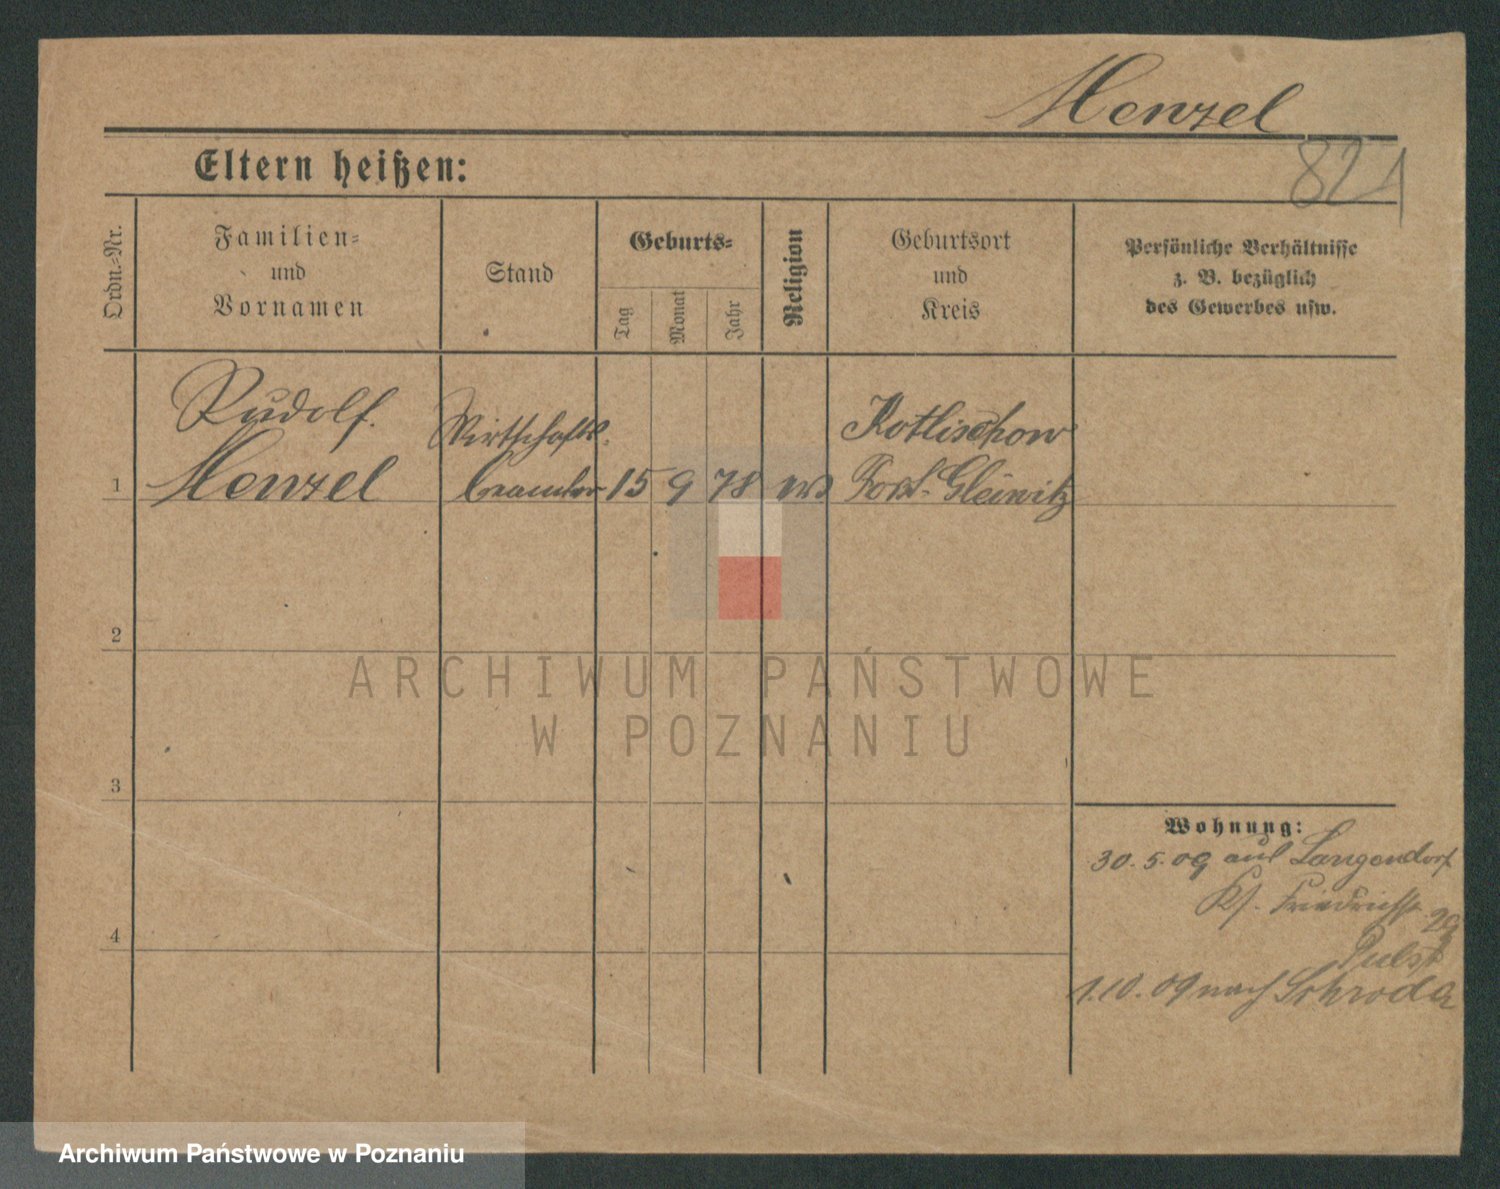 Menzel
821
Eltern heißen:
Ordn.-Nr.
Familien-
und
Vornamen
Stand
Geburts-
Tag
Monat
Jahr
Religion
Geburtsort
und
Kreis
Persönliche Verhältnisse
z. B. bezüglich
des Gewerbes usw.
Rudolf
Menzel
Wirtschafts-
beamter
1
15 9 78
Kotlischow
Gleiwitz
2
3
4
Wohnung:
30.5.09 aus Langendorf
Friedrichstr. 29
1.10.09 nach Schroda
ARCHIWUM PAŃSTWOWE
W POZNANIU
Archiwum Państwowe w Poznaniu